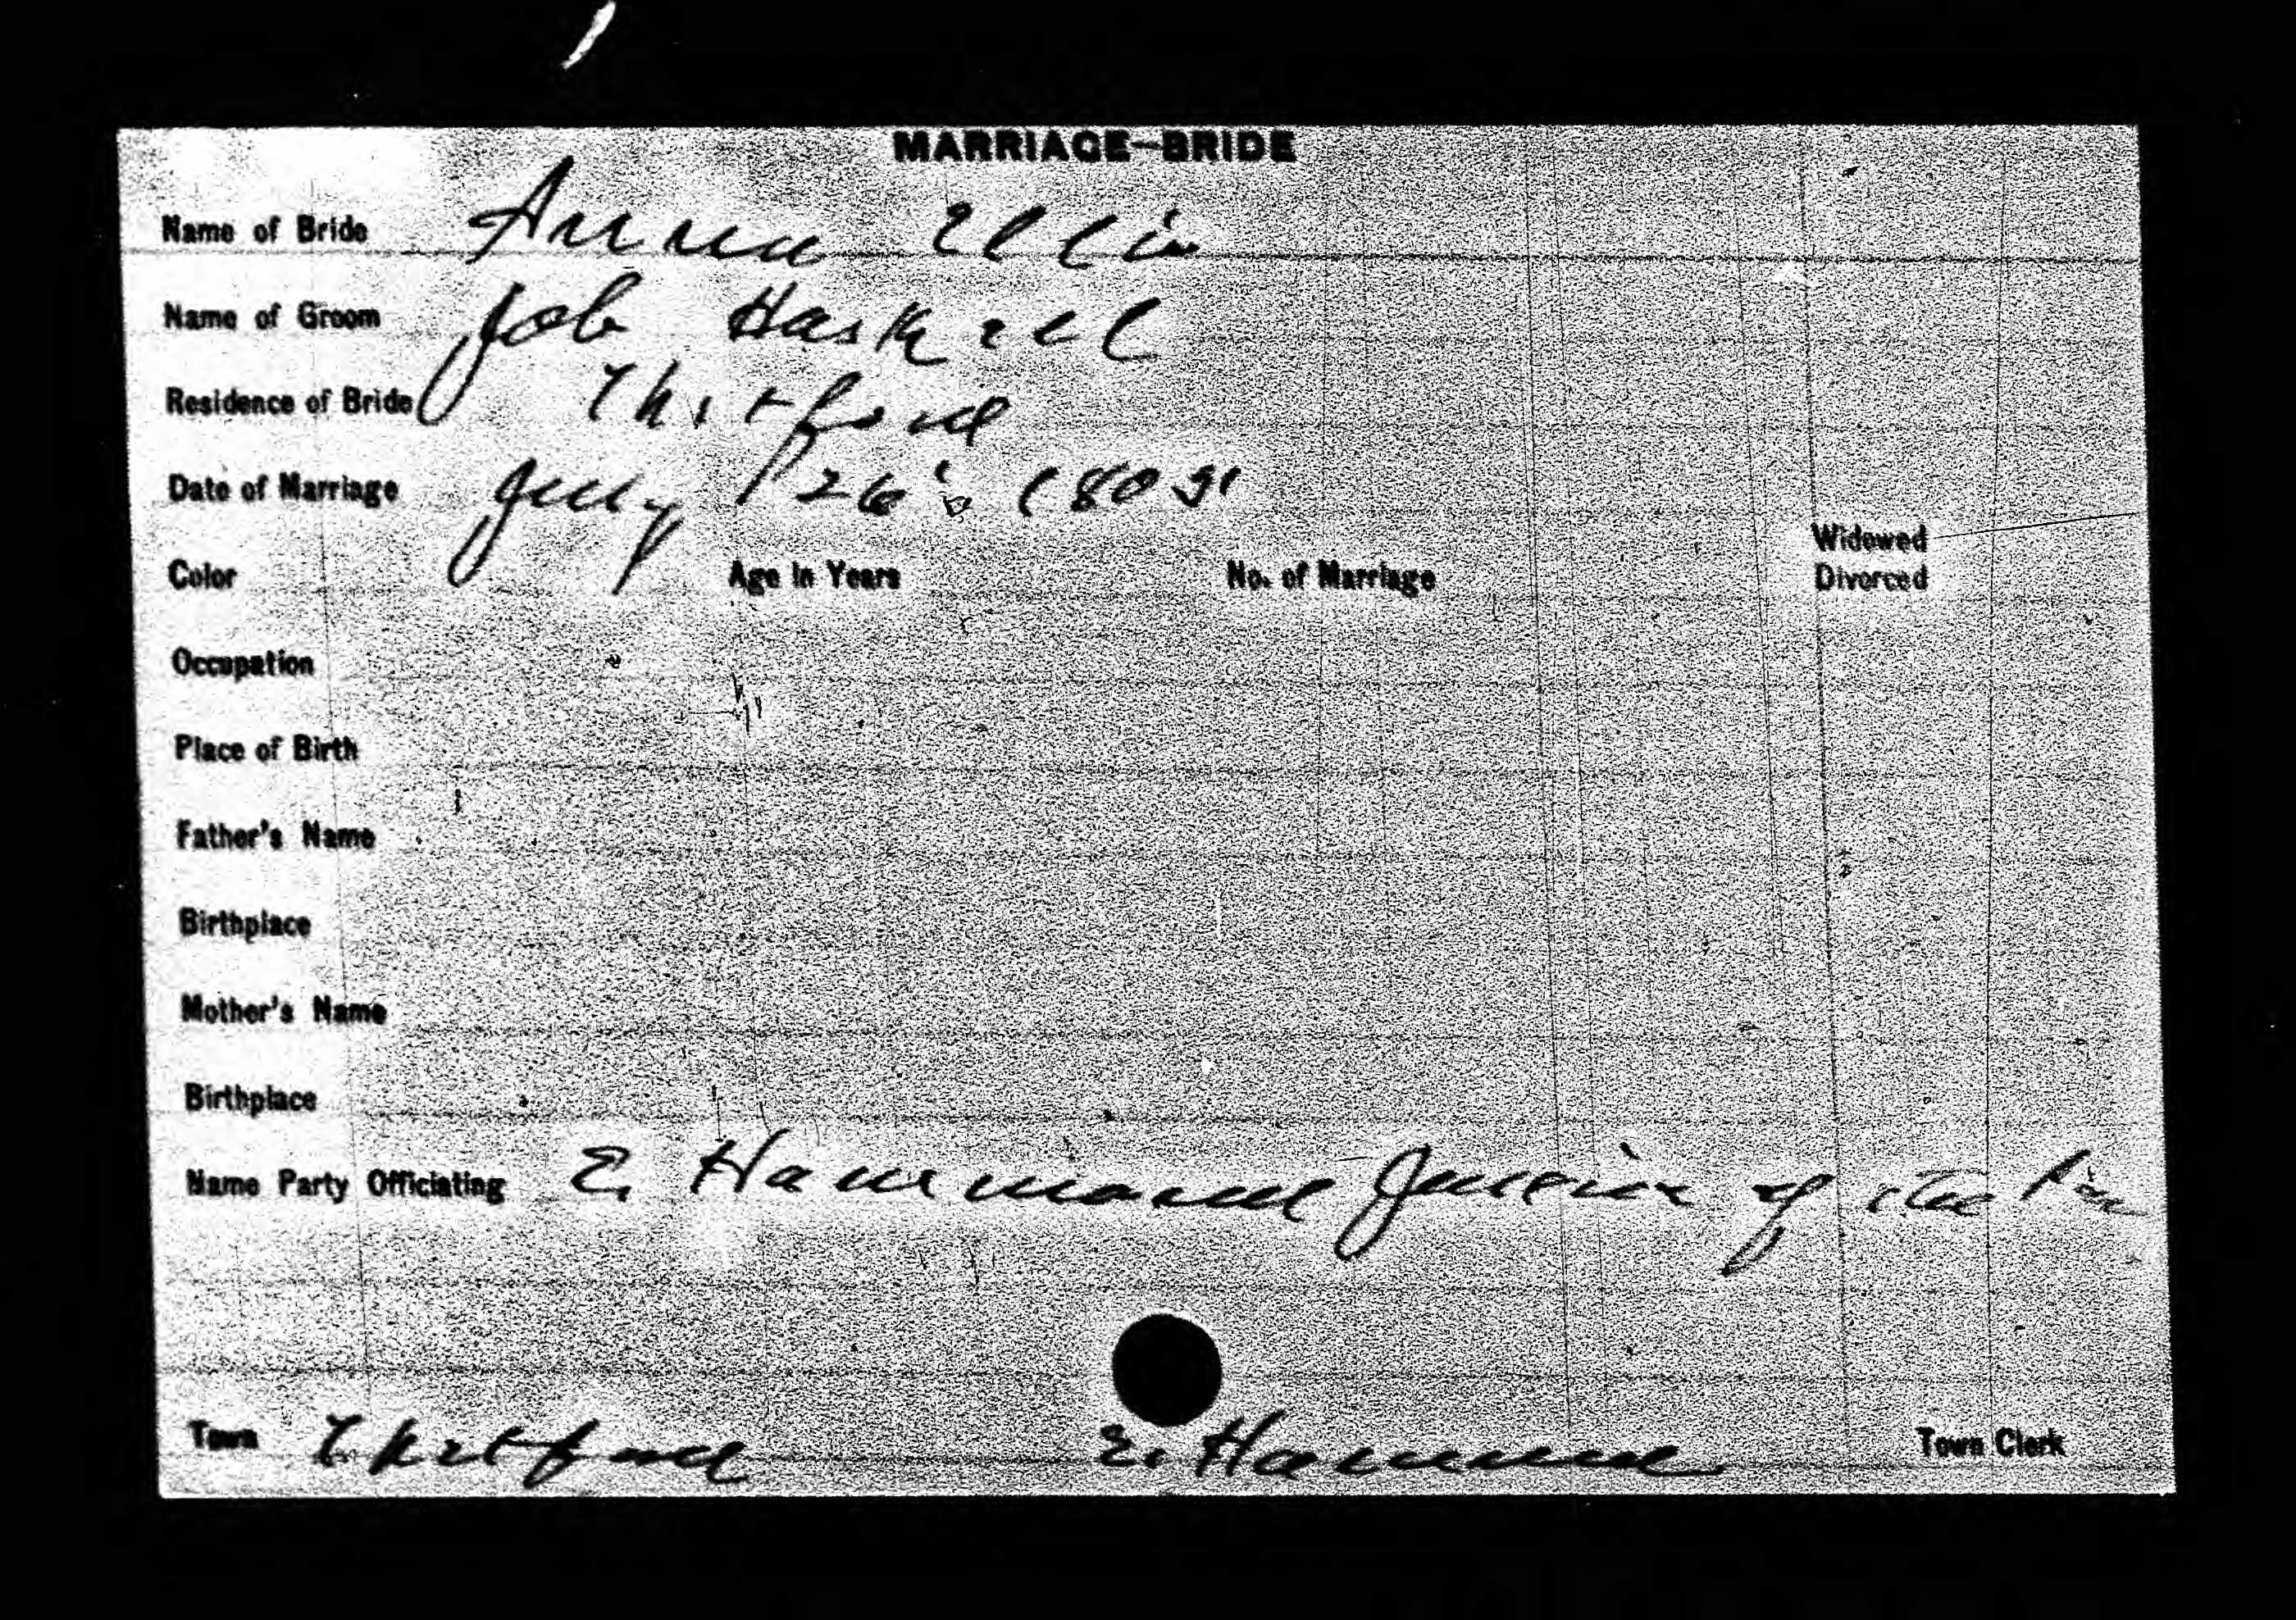 MARRIAGE—BRIDE
Name of Bride Anna Ellis
Name of Groom Job Haskell
Residence of Bride Thetford
Date of Marriage July 26 180
Color Age in Years No. of Marriage Widowed
Divorced
Occupation
Place of Birth
Father's Name
Birthplace
Mother's Name
Birthplace
Name Party Officiating E. Hammond Justice of the
Town Thetford E. Hammond Town Clerk